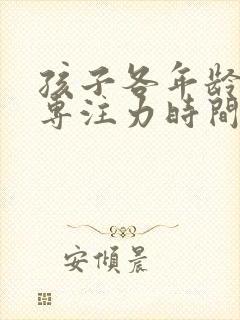 孩子各年齡
專注力時間
安傾晨